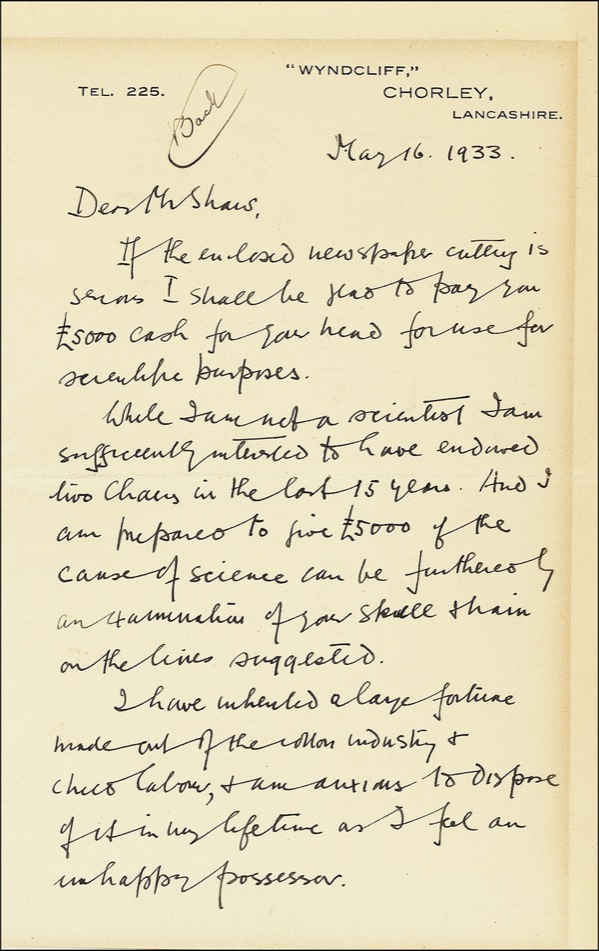 "WYNDCLIFF,"
TEL. 225.
CHORLEY,
LANCASHIRE.
Back
May 16. 1933.
Dear Mr Shaw,
If the enclosed newspaper cutting is
serious I shall be glad to pay you
£5000 cash for your head for use for
scientific purposes.
While I am not a scientist I am
sufficiently interested to have endowed
two Chairs in the last 15 years. And I
am prepared to give £5000 if the
cause of science can be furthered by
an examination of your skull & brain
on the lines suggested.
I have inherited a large fortune
made out of the cotton industry &
child labour, & am anxious to dispose
of it in my lifetime as I feel an
unhappy possessor.